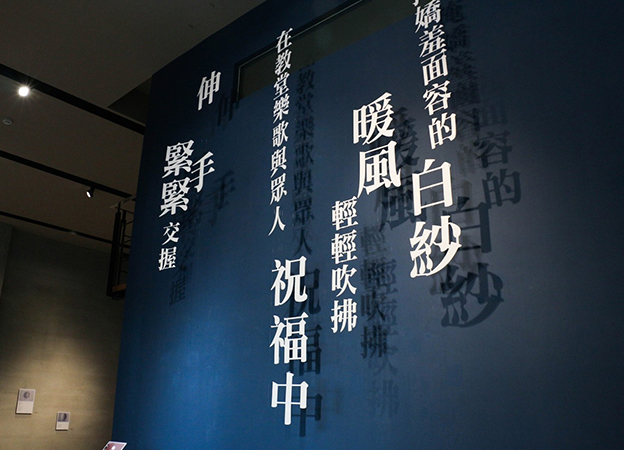 嬌羞面容的白紗
暖風
輕輕吹拂
在教堂樂歌與眾人
祝福中
伸手
緊緊交握